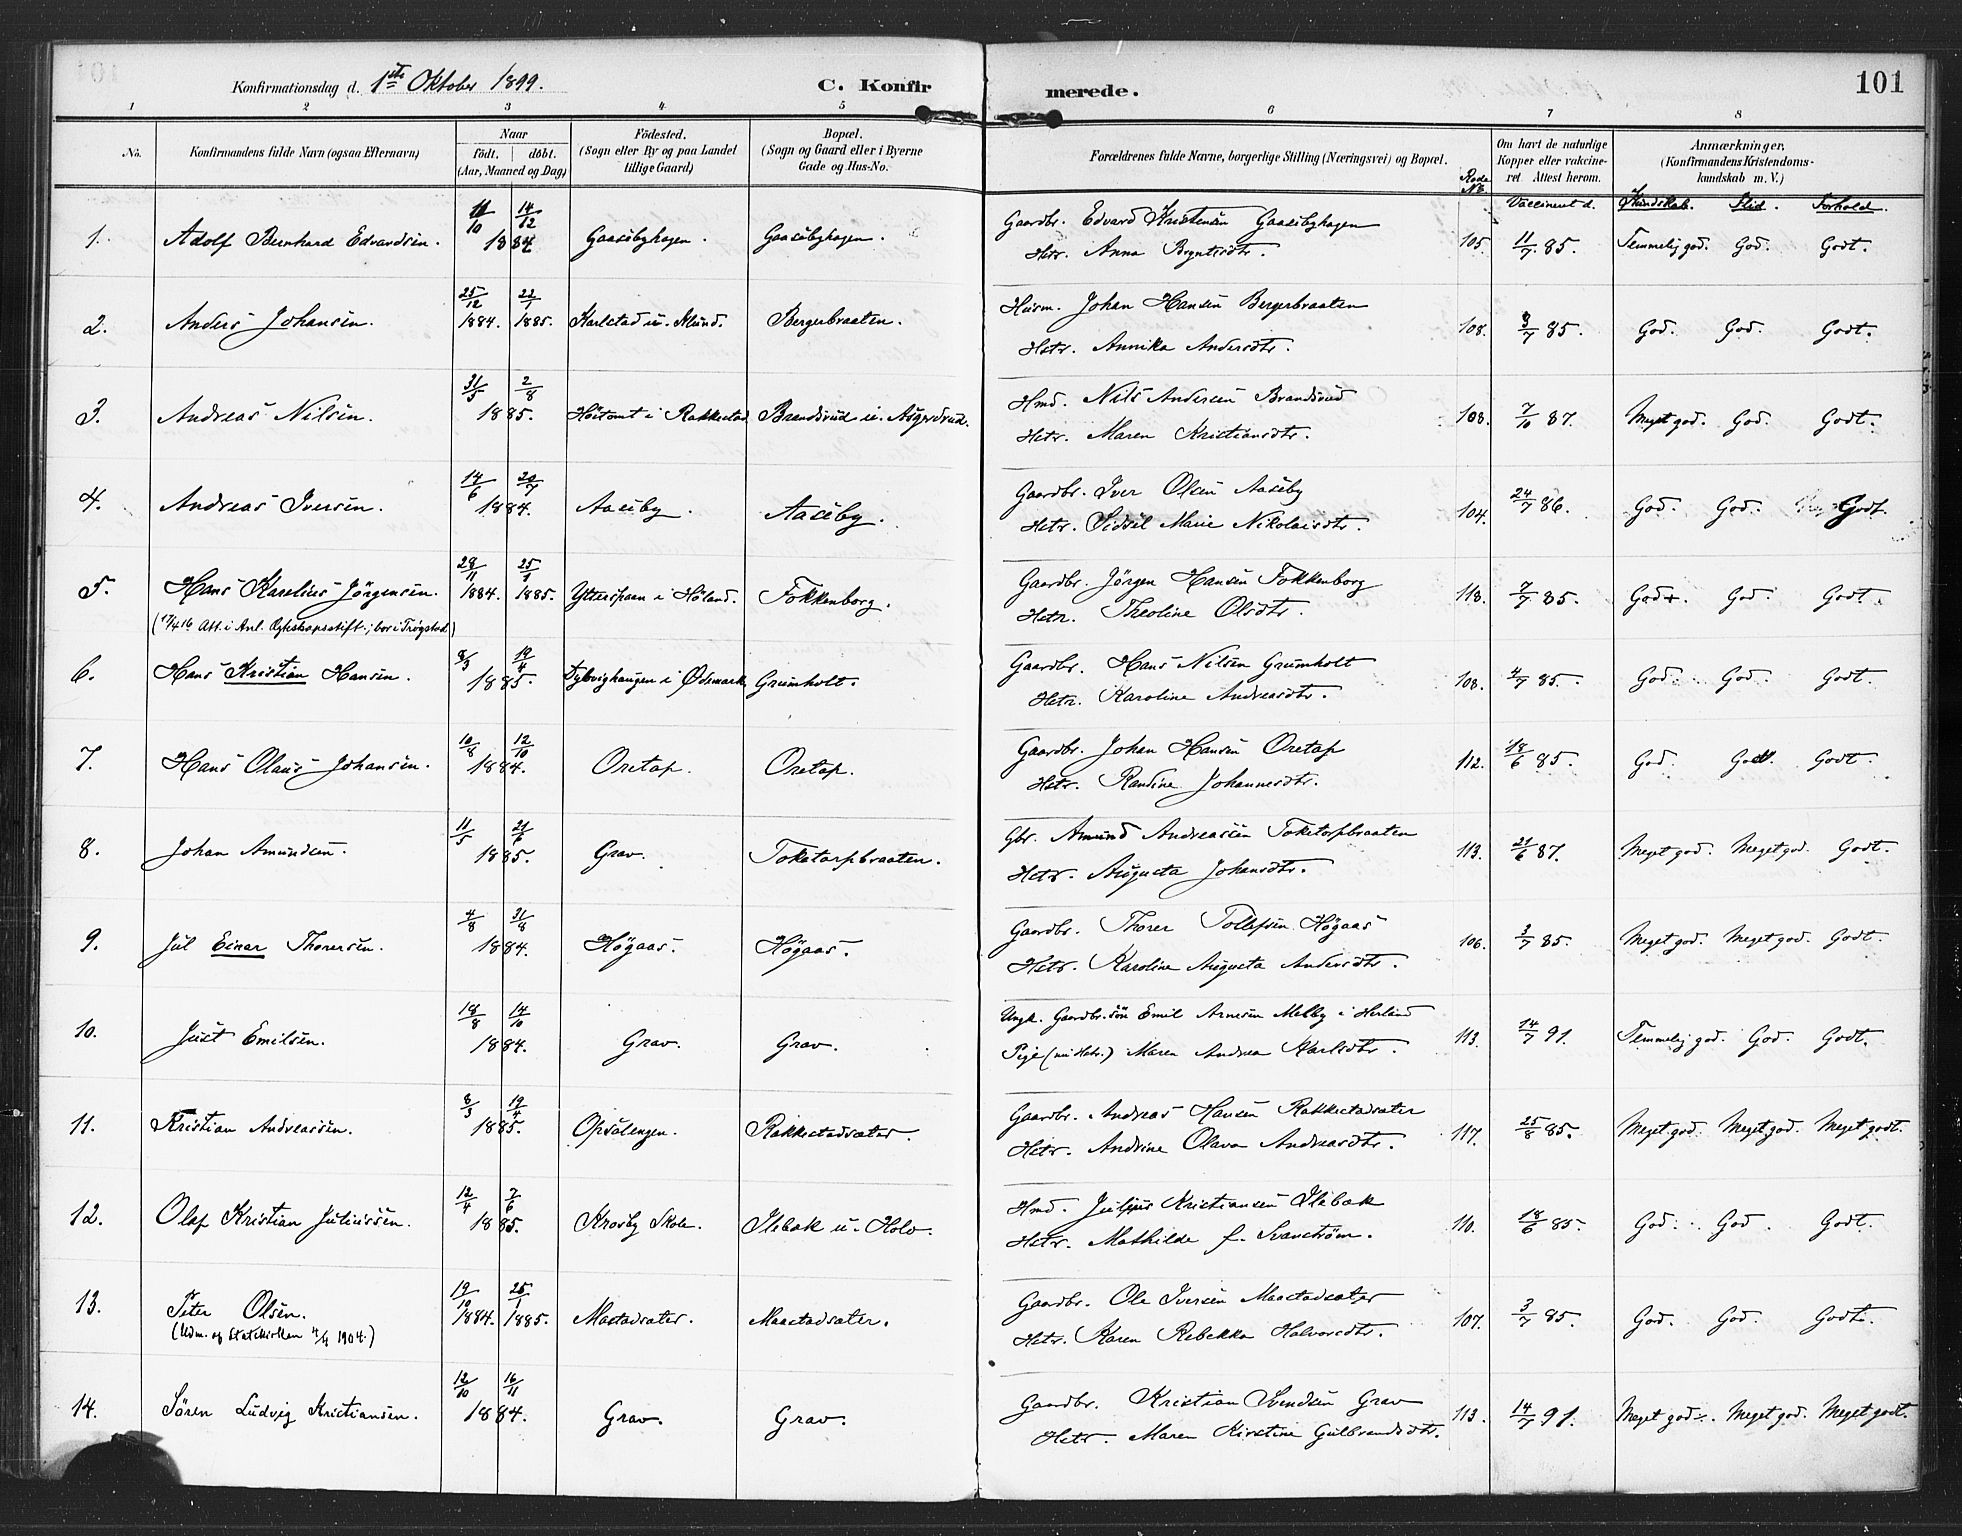 101
Konfirmationsdag d. 1ste Oktober 1899.
C. Konfirmerede.
1 2 3 4 5 6 7 8
No.
Konfirmandens fulde Navn (ogsaa Efternavn)
Naar
födt. | döbt.
(Aar, Maaned og Dag)
Födested.
(Sogn eller By og paa Landet
tillige Gaard)
Bopæl.
(Sogn og Gaard eller i Byerne
Gade og Hus-No.
Forældrenes fulde Navne, borgerlige Stilling (Næringsvei) og Bopæl.
Rode No.
Om havt de naturlige
Kopper eller vakcine-
ret. Attest herom.
Anmærkninger.
(Konfirmandens Kristendoms-
kundskab m. V.)
Vaccineret d. Kundskab. Flid. Forhold.
1. Adolf Bernhard Edvardsen. 11/10 14/12 1884 Gaasebyhagen. Gaasebyhagen. Gaardbr. Edvard Kristensen Gaasebyhagen
Hstr. Anna Bryntesdtr. 105. 11/7 85. Temmelig god. God. Godt.
2. Anders Johansen. 25/12 1884. 22/1 1885. Karlstad u. Mund. Bergerbraaten. Husm. Johan Hansen Bergerbraaten
Hstr. Annika Andersdtr. 108. 3/7 85. God. God. Godt.
3. Andreas Nilsen. 31/5 2/8 1885. Höitomt i Rakkestad Brandsrud u. Asgjerdrud. Hmd. Nils Andersen Brandsrud
Hstr. Maren Kristiansdtr. 108. 7/10 87. Meget god. God. Godt.
4. Andreas Iversen. 14/6 20/7 1884. Aaseby. Aaseby. Gaardbr. Iver Olsen Aaseby
Hstr. Sidsel Marie Nikolaisdtr. 104. 24/7 86. God. God. Godt.
5. Hans Karelius Jörgensen. 28/11 1884. 25/1 1885. Ytterspaen i Höland. Fokkenborg. Gaardbr. Jörgen Hansen Fokkenborg
(17/4 16 Att. i Anl. Ægteskapsstift.; bor i Trøgstad) Hstr. Theoline Olsdtr. 118. 7/7 85. God. God. Godt.
6. Hans Kristian Hansen. 8/3 19/4 1885. Dybvighaugen i Ødemark. Grumholt. Gaardbr. Hans Nilsen Grumholt
Hstr. Karoline Andreasdtr. 108. 4/7 85. God. God. Godt.
7. Hans Olaus Johansen. 10/8 12/10 1884. Oretap. Oretop. Gaardbr. Johan Hansen Oretap
Hstr. Randine Johannesdtr. 112. 18/6 85. God. God. Godt.
8. Johan Amundsen. 11/5 21/6 1885. Grav. Toketorpbraaten. Gbr. Amund Andreassen Toketorpbraaten
Hstr. Augusta Johansdtr. 113. 21/6 87. Meget god. Meget god. Godt.
9. Jul Einar Thorersen. 4/8 31/8 1884. Högaas. Högaas. Gaardbr. Thorer Tollefsen Högaas
Hstr. Karoline Augusta Andersdtr. 106. 3/7 85. Meget god. Meget god. Godt.
10. Just Emilsen. 18/8 14/10 1884. Grav. Grav. Ungk. Gaardbr.sön Emil Arnesen Melby i Herland
Pige (nu Hstr.) Maren Andrea Karlsdtr. 113. 14/7 91. Temmelig god. God. Godt.
11. Kristian Andreassen. 8/3 19/4 1885. Opsalengen. Rakkestadsæter. Gaardbr. Andreas Hansen Rakkestadsæter
Hstr. Andrine Olava Andreasdtr. 117. 25/8 85. Meget god. Meget god. Meget godt.
12. Olaf Kristian Juliussen. 12/4 7/6 1885. Krosby Skole. Ilebæk u. Kolo. Hmd. Julius Kristiansen Ilebæk
Hstr. Mathilde f. Svanström. 110. 18/6 85. God. God. Godt.
13. Peter Olsen. 19/10 1884. 25/1 1885. Mastadsæter. Maastadsæter. Gaardbr. Ole Iversen Maastadsæter
(Udm. af Statskirken 4/4 1904.) Hstr. Karen Rebekka Halvorsdtr. 107. 3/7 85. God. God. Godt.
14. Sören Ludvig Kristiansen. 12/10 16/11 1884. Grav. Grav. Gaardbr. Kristian Svendsen Grav
Hstr. Maren Kirstine Gulbrandsdtr. 113. 14/7 91. Meget god. Meget god. Meget godt.